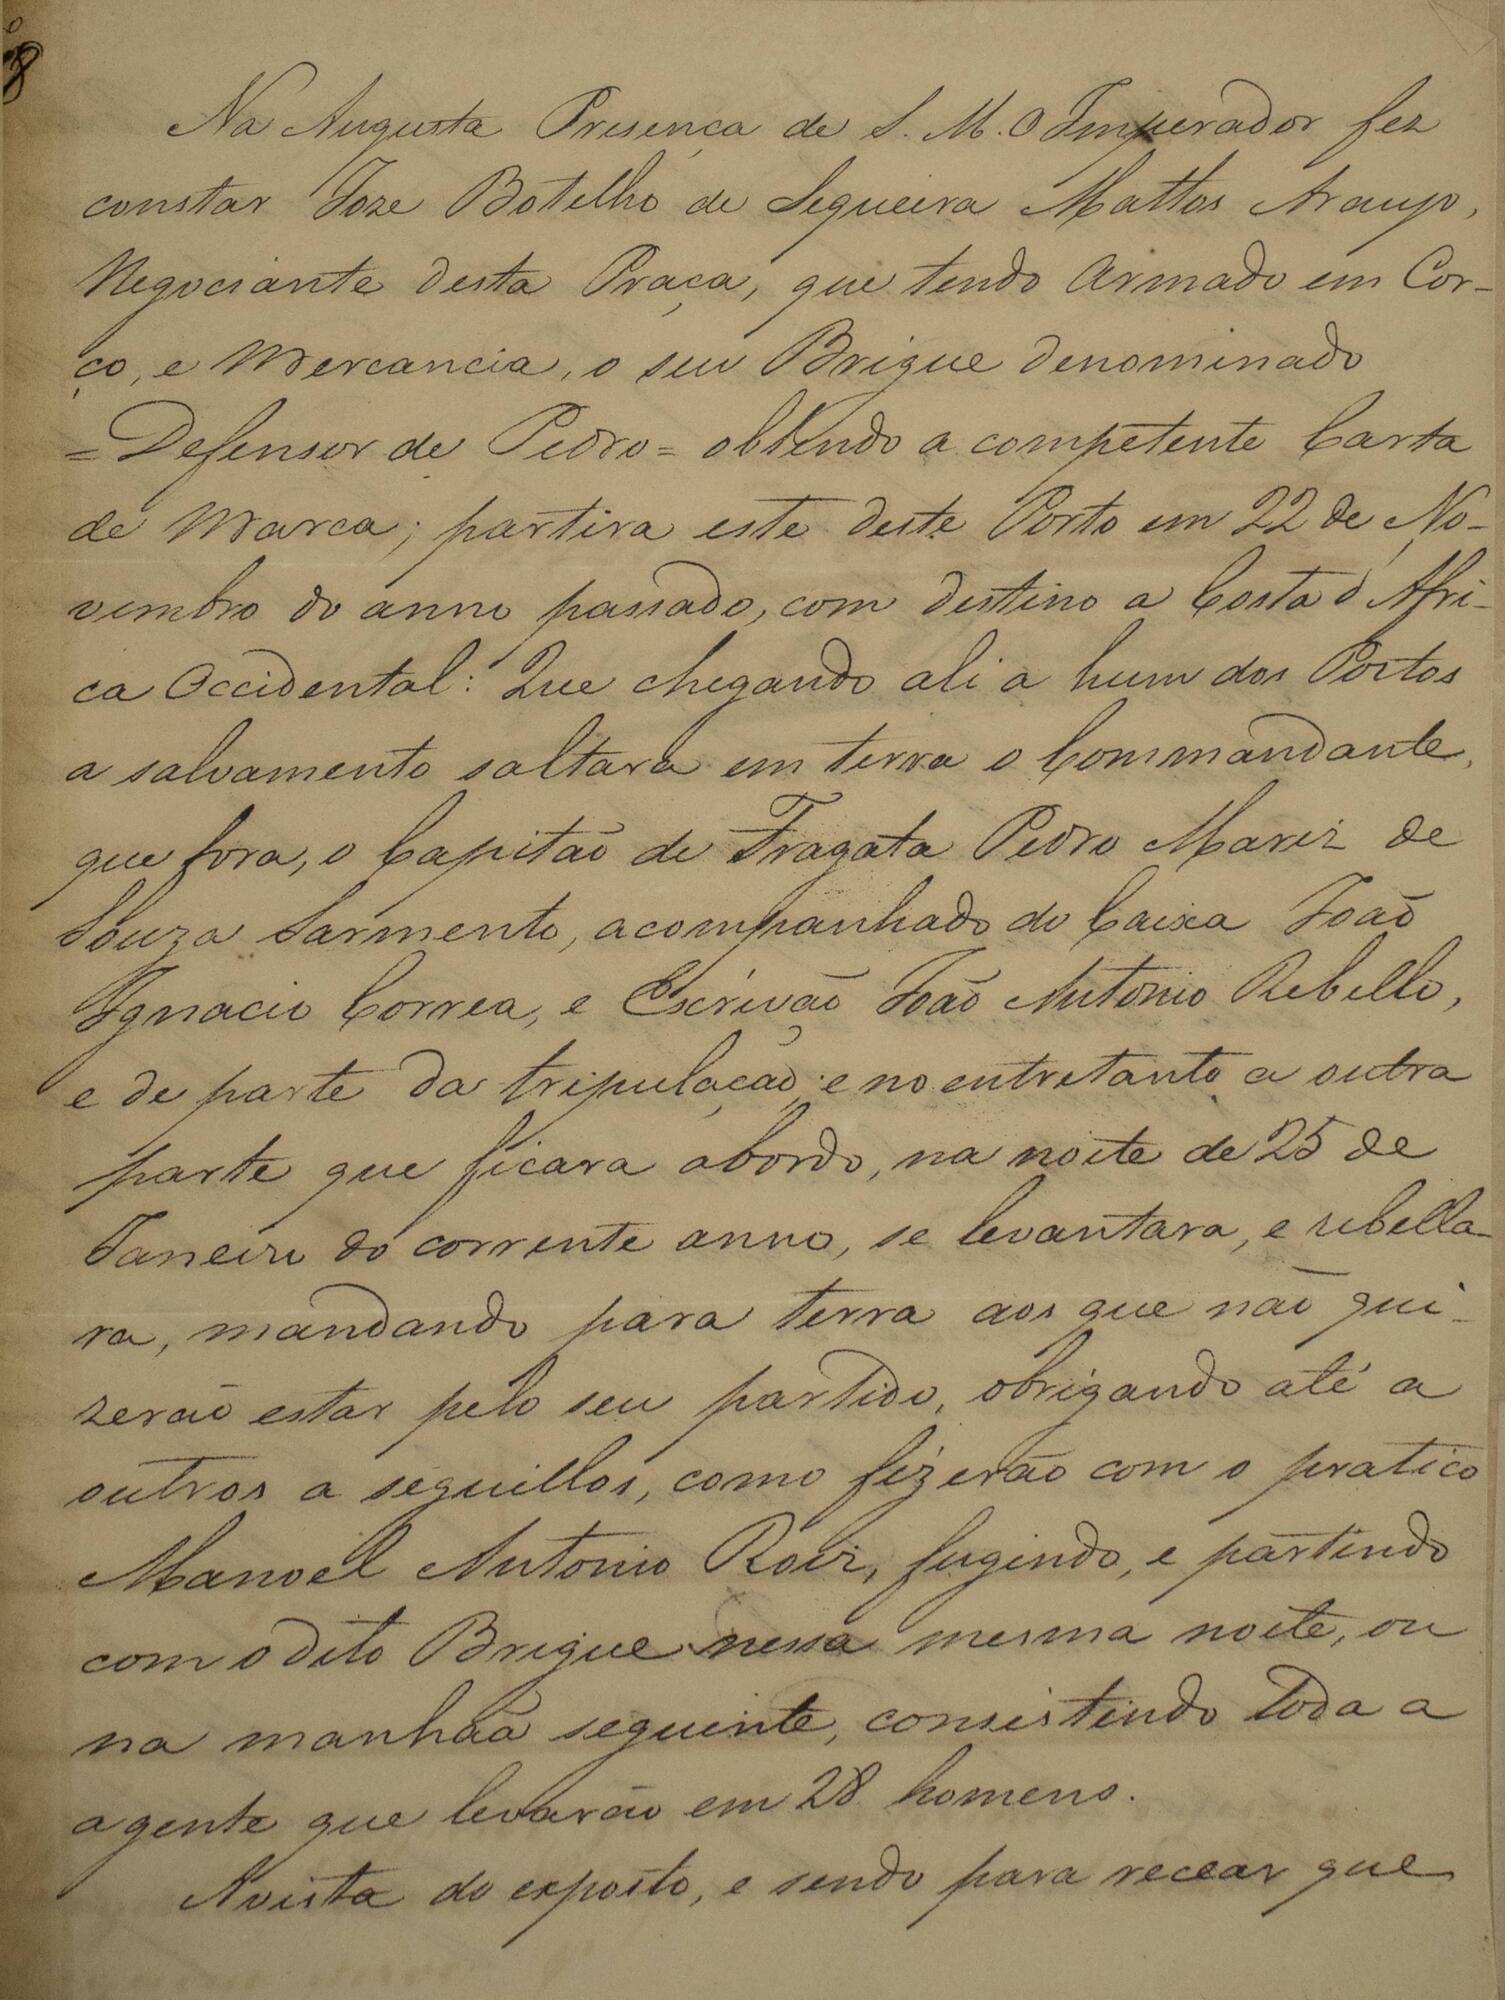 8
Na Augusta Presença de S. M. O Imperador fez
constar Joze Botelho de Sequeira Mattos Araujo,
Negociante desta Praça, que tendo Armado em Cor-
ço, e Mercancia, o seu Brigue denominado
=Defensor de Pedro= obtendo a competente Carta
de Marca; partira este deste Porto em 22 de No-
vembro do anno passado, com destino a Costa d'Afri-
ca Occidental: Que chegando ali a hum dos Portos
a salvamento saltara em terra o Commandante,
que fora, o Capitão de Fragata Pedro Mariz de
Souza Sarmento, acompanhado do Caixa João
Ignacio Correa, e Escrivão João Antonio Rebello,
e de parte da tripulação; e no entretanto a outra
parte que ficara abordo, na noite de 25 de
Janeiro do corrente anno, se levantara, e rebella-
ra, mandando para terra aos que não qui-
zerão estar pelo seu partido, obrigando até a
outros a seguillos, como fizerão com o pratico
Manoel Antonio Roiz, fugindo, e partindo
com o dito Brigue nessa mesma noite, ou
na manhãa seguinte, consistindo toda a
a gente que levarão em 28 homens.
A vista do exposto, e sendo para recear que